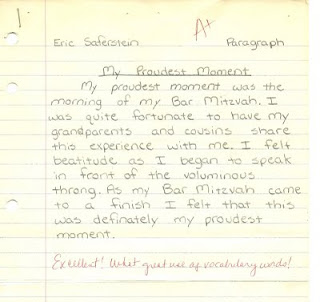 A+
Eric Saferstein Paragraph
My Proudest Moment
My proudest moment was the
morning of my Bar Mitzvah. I
was quite fortunate to have my
grandparents and cousins share
this experience with me. I felt
beatitude as I began to speak
in front of the voluminous
throng. As my Bar Mitzvah came
to a finish I felt that this
was definately my proudest
moment.
Excellent! What great use of vocabulary words!